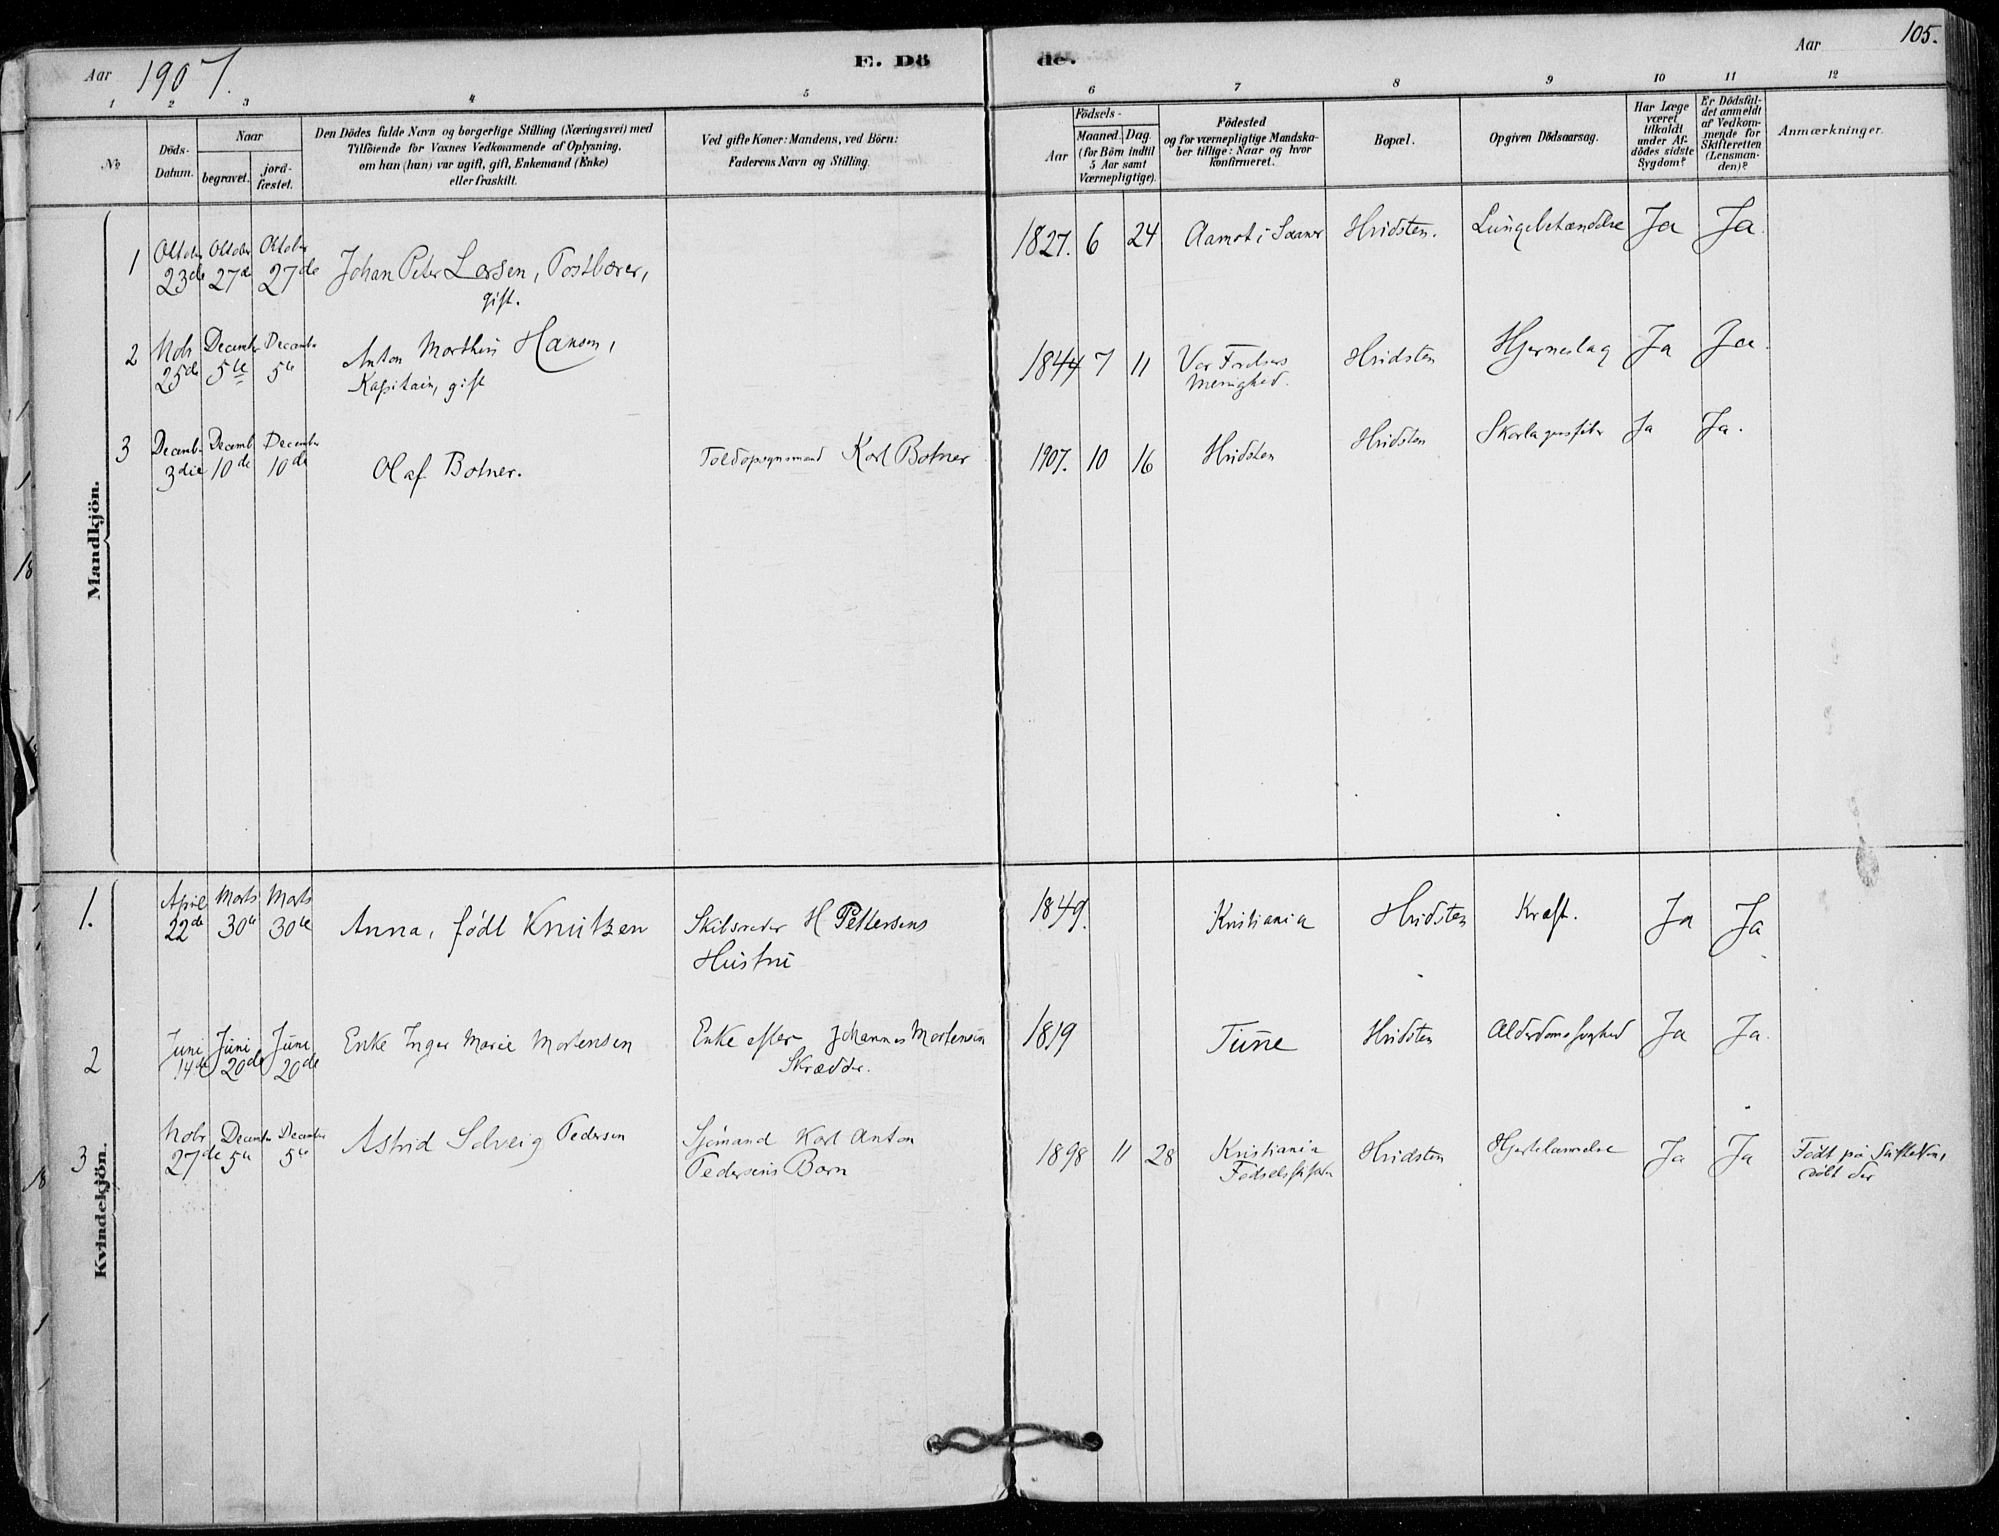 Aar 1907.
E. Dö
de.
Aar
105.
1 2 3 4 5 6 7 8 9 10 11 12
No
Döds-Datum.
Naar
begravet.
jord-fæstet.
Den Dödes fulde Navn og borgerlige Stilling (Næringsvei) med
Tilföiende for Voxnes Vedkommende af Oplysning,
om han (hun) var ugift, gift, Enkemand (Enke)
eller fraskilt.
Ved gifte Koner: Mandens, ved Börn:
Faderens Navn og Stilling.
Födsels-
Aar
Maaned. Dag.
(for Börn indtil
5 Aar samt
Værnepligtige).
Födested
og for værnepligtige Mandska-
ber tillige: Naar og hvor
konfirmeret.
Bopæl.
Opgiven Dödsaarsag.
Har Læge
været
tilkaldt
under Af-
dödes sidste
Sygdom?
Er Dödsfal-
det anmeldt
af Vedkom-
mende for
Skifteretten
(Lensman-
den)?
Anmærkninger.
Mandkjön.
1 Oktober 23de Oktober 27de Oktober 27de Johan Peter Larsen, Postbærer, 1827. 6 24 Aamot i Hvidsten. Lungebetændelse Ja Ja.
gift.
2 Nobr 25de December 5te December 5te Anton Marthin Hansen, 1844 7 11 Vor Frelsers Hvidsten Hjerneslag Ja Ja.
Kapitain, gift Menighed.
3 Decemb. 3die Decemb. 10de December 10de Olaf Botner. Toldopsynsmand Karl Botner 1907. 10 16 Hvidsten Hvidsten Skarlagensfeber Ja Ja.
Kvindekjön.
1. April 22de Marts 30te Marts 30te Anna, født Knutzen Skibsreder H Pettersens 1849. Kristiania Hvidsten Kræft. Ja Ja.
Hustru
2 Juni 14de Juni 20de Juni 20de Enke Inger Marie Mortensen Enke efter Johannes Mortensen 1819 Tune Hvidsten Alderdomssvaghed Ja Ja.
Skrædder.
3 Nobr 27de December 5te December 5te Astrid Solveig Pedersen Sjømand Karl Anton 1898 11 28 Kristiania Hvidsten Hjertelammelse Ja Ja Født på Stiftelsen,
Pedersens Barn døbt der